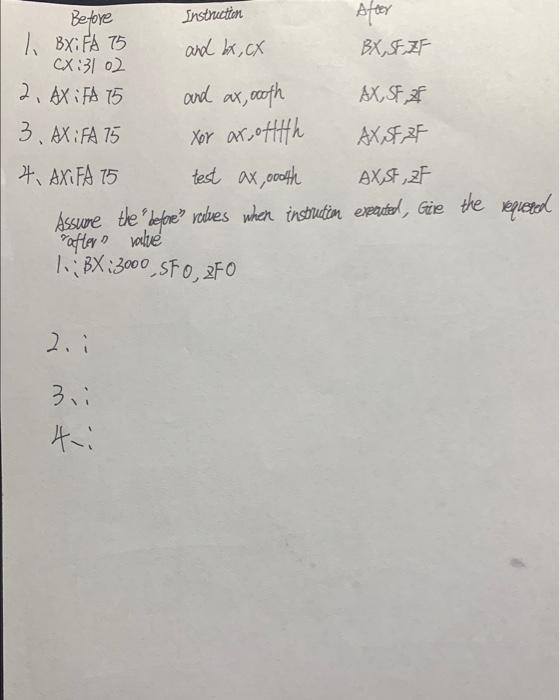 Before Instruction After
1、 BX:FA 75 and bx,cx BX,SF,ZF
CX:31 02
2、AX:FA 75 and ax,000fh AX,SF,ZF
3、AX:FA 75 Xor ax,0ffffh AX,SF,ZF
4、AX:FA 75 test ax,0004h AX,SF,ZF
Assume the "before" values when instruction executed, Give the requested
"after" value
1、: BX:3000, SF 0, ZF 0
2、:
3、:
4、: